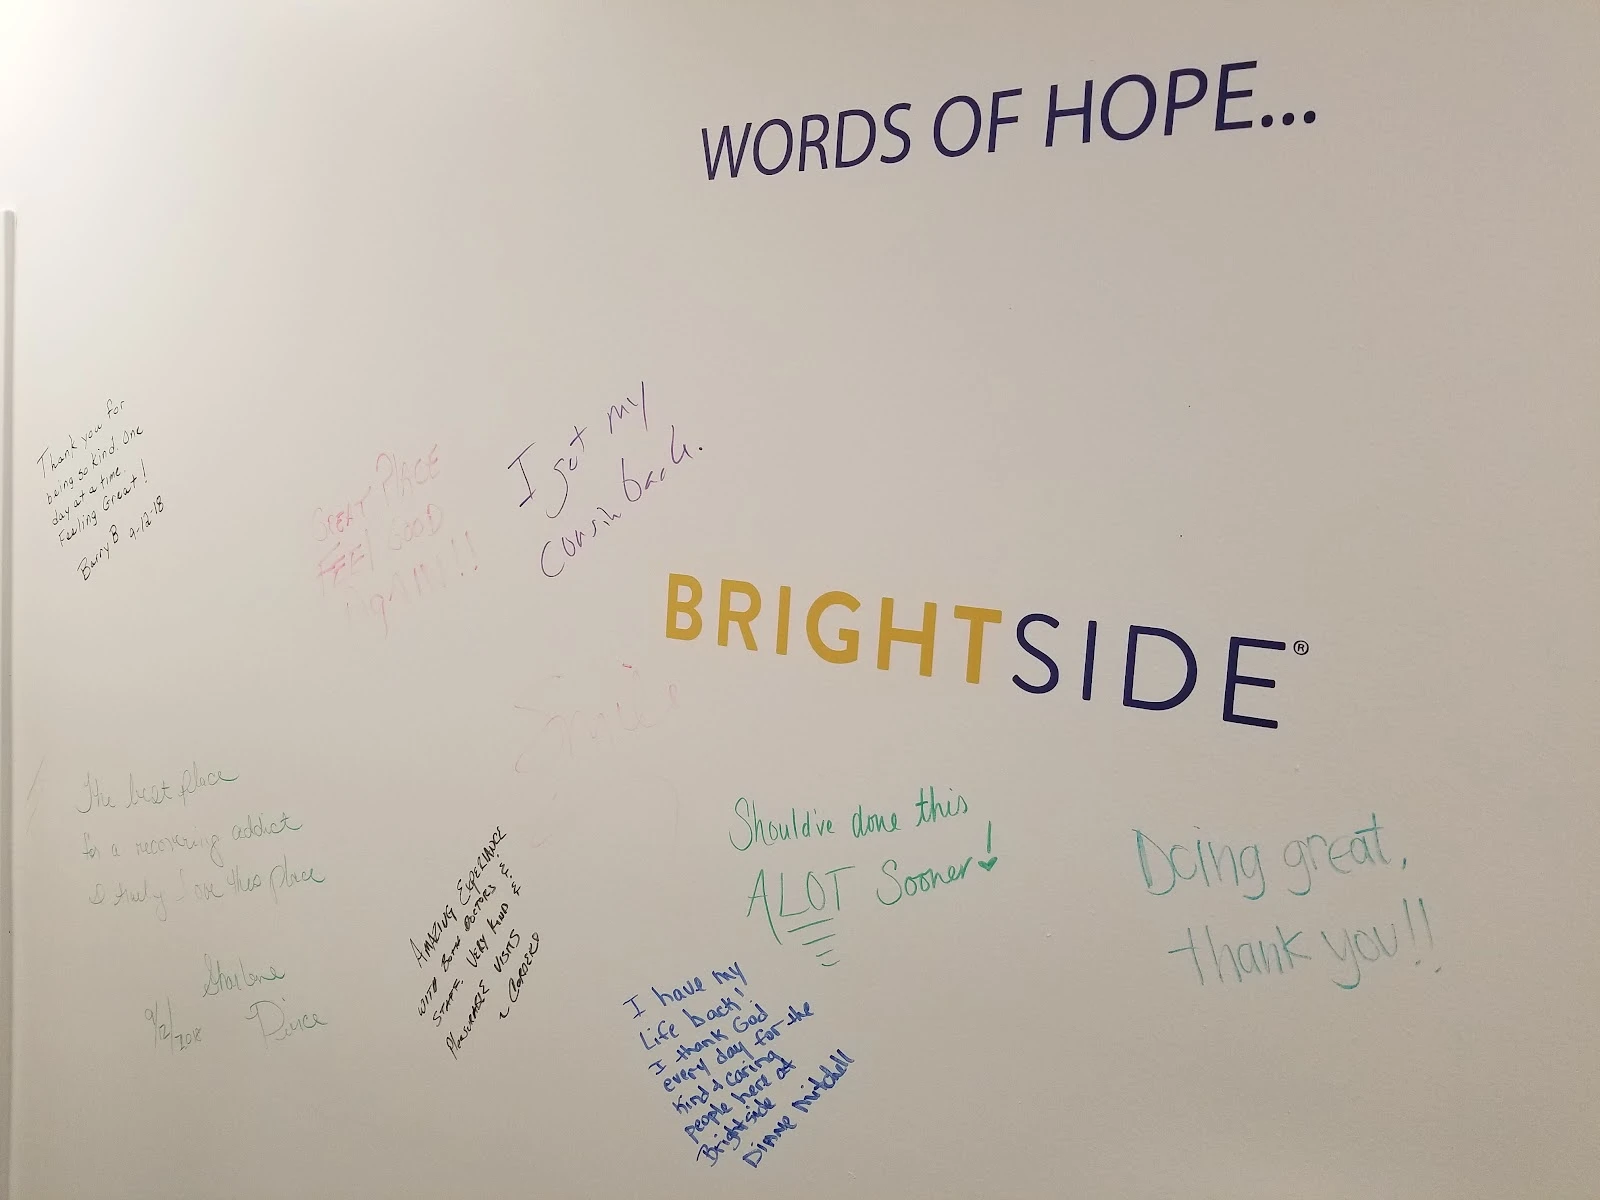 WORDS OF HOPE...
Thank you for
being so kind. One
day at a time.
Feeling Great!
Barry B 9-12-18
GREAT PLACE
FEEl GOOD
AgAIN!!
I got my
cousin back.
BRIGHTSIDE®
Smile
The best place
for a recovering addict
I truly love this place
9/2/2018
AMAZING EXPERIANCE
WITH BOTH DOCTORS &
STAFF. VERY KIND &
PLEASURABLE VISITS
~ CORDERO
Should've done this
ALOT Sooner!
I have my
Life back!
I thank God
every day for the
kind & caring
people here at
Brightside
Dianne Mitchell
Doing great,
thank you!!